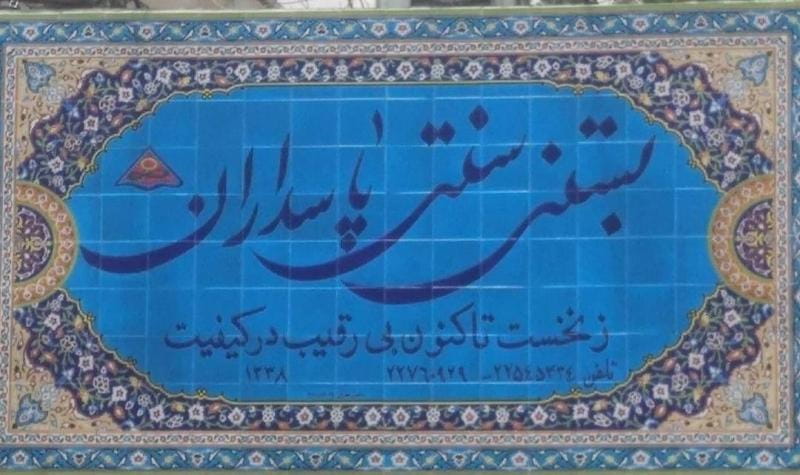 بستنی سنتی پاسداران
ز نخست تاکنون بی رقیب در کیفیت
تلفن ۲۲۵۴۵۴۳۴ - ۲۲۷۶۰۹۲۹ ۱۳۳۸